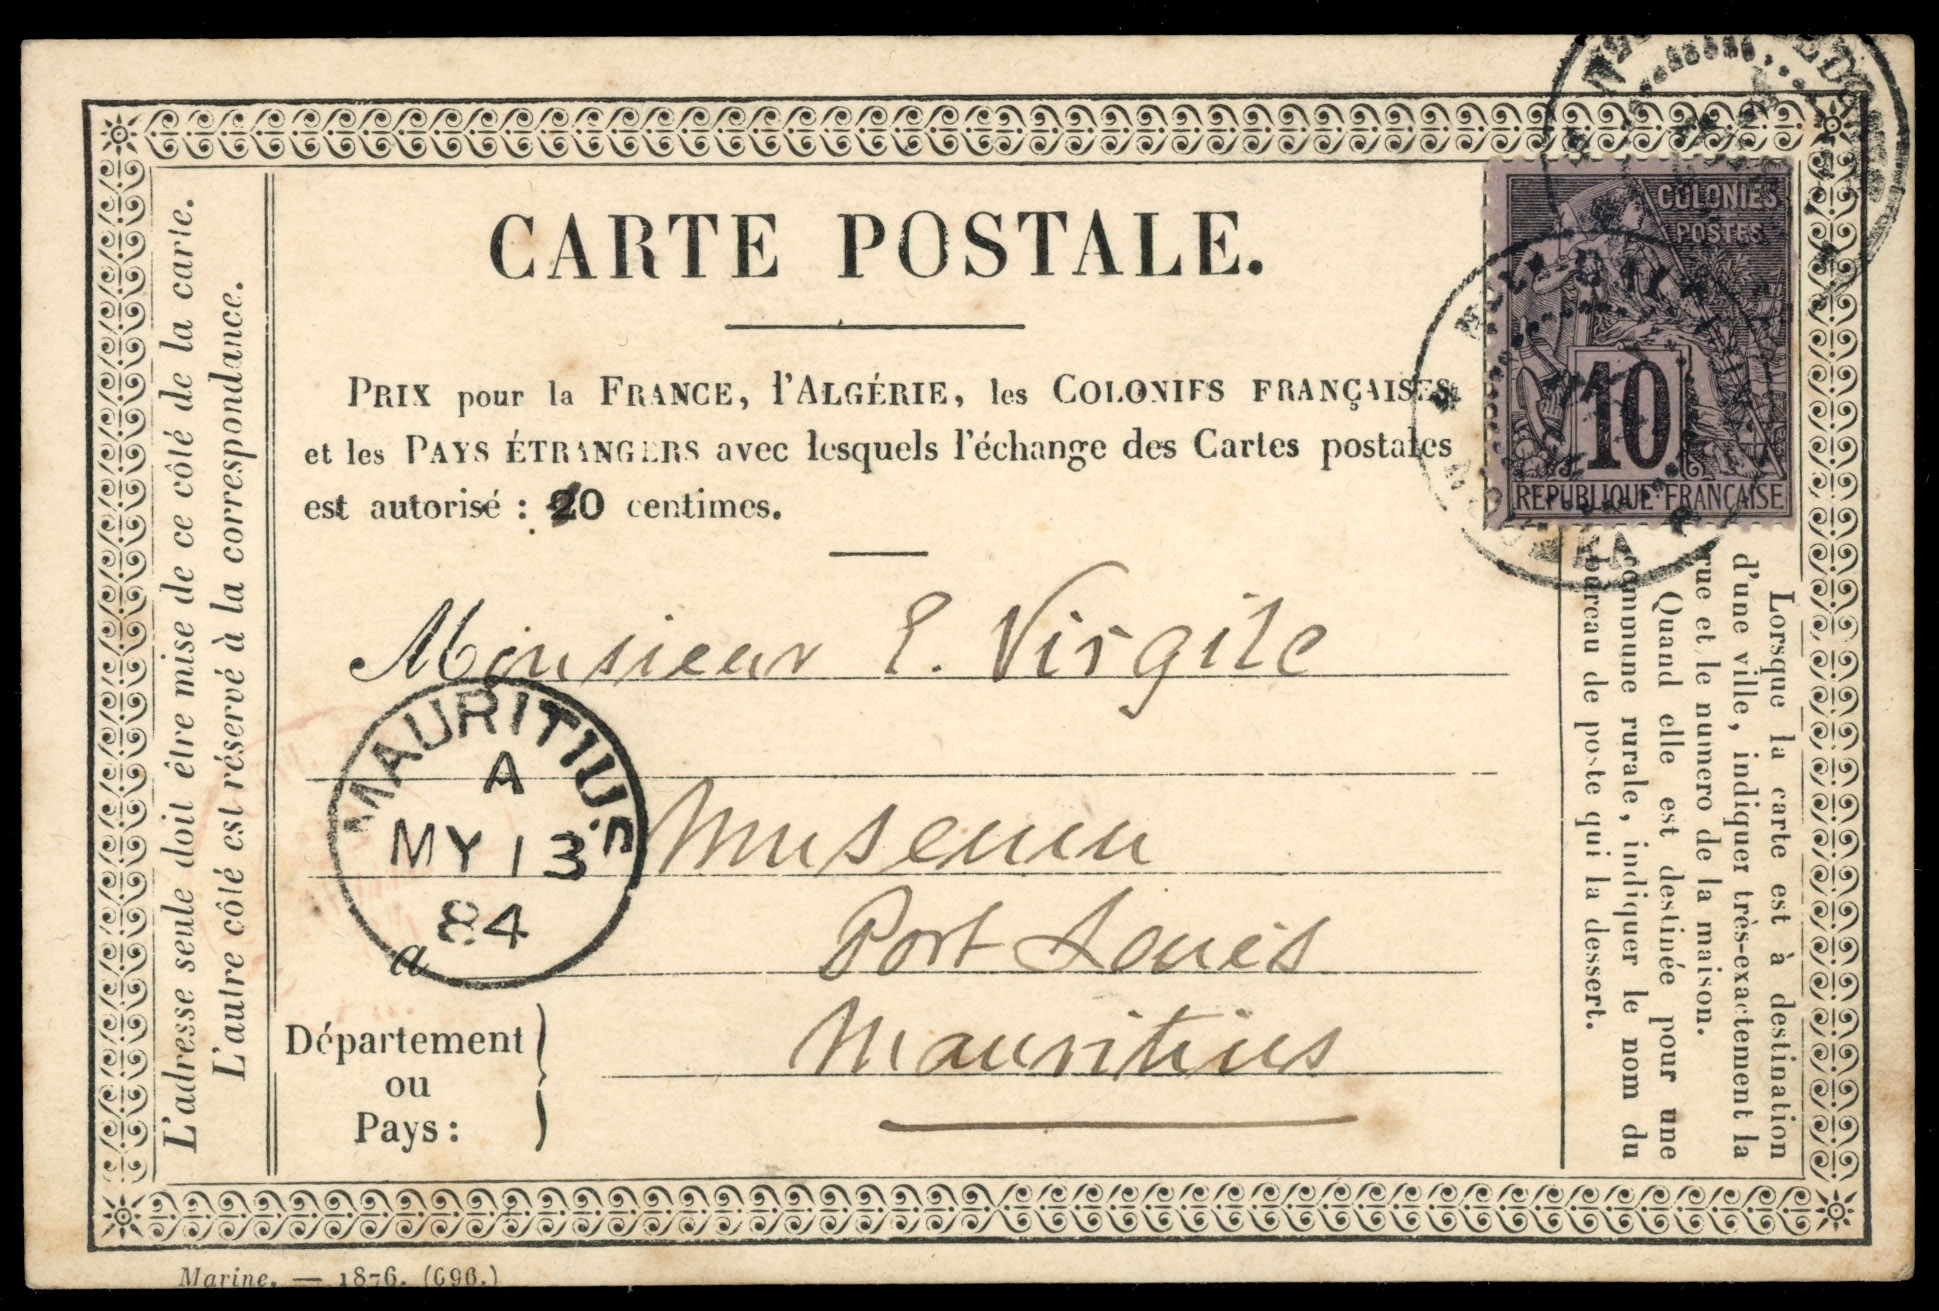 CARTE POSTALE.
PRIX pour la FRANCE, l'ALGÉRIE, les COLONIES FRANÇAISES
et les PAYS ÉTRANGERS avec lesquels l'échange des Cartes postales
est autorisé : 20 centimes.
L'adresse seule doit être mise de ce côté de la carte.
L'autre côté est réservé à la correspondance.
COLONIES
POSTES
10
REPUBLIQUE FRANÇAISE
Monsieur E. Virgile
MAURITIUS
A
MY 13
84
Museum
à Port Louis
Mauritius
Département
ou
Pays :
Lorsque la carte est à destination
d'une ville, indiquer très-exactement la
rue et le numero de la maison.
Quand elle est destinée pour une
commune rurale, indiquer le nom du
bureau de poste qui la dessert.
Marine. — 1876. (696.)